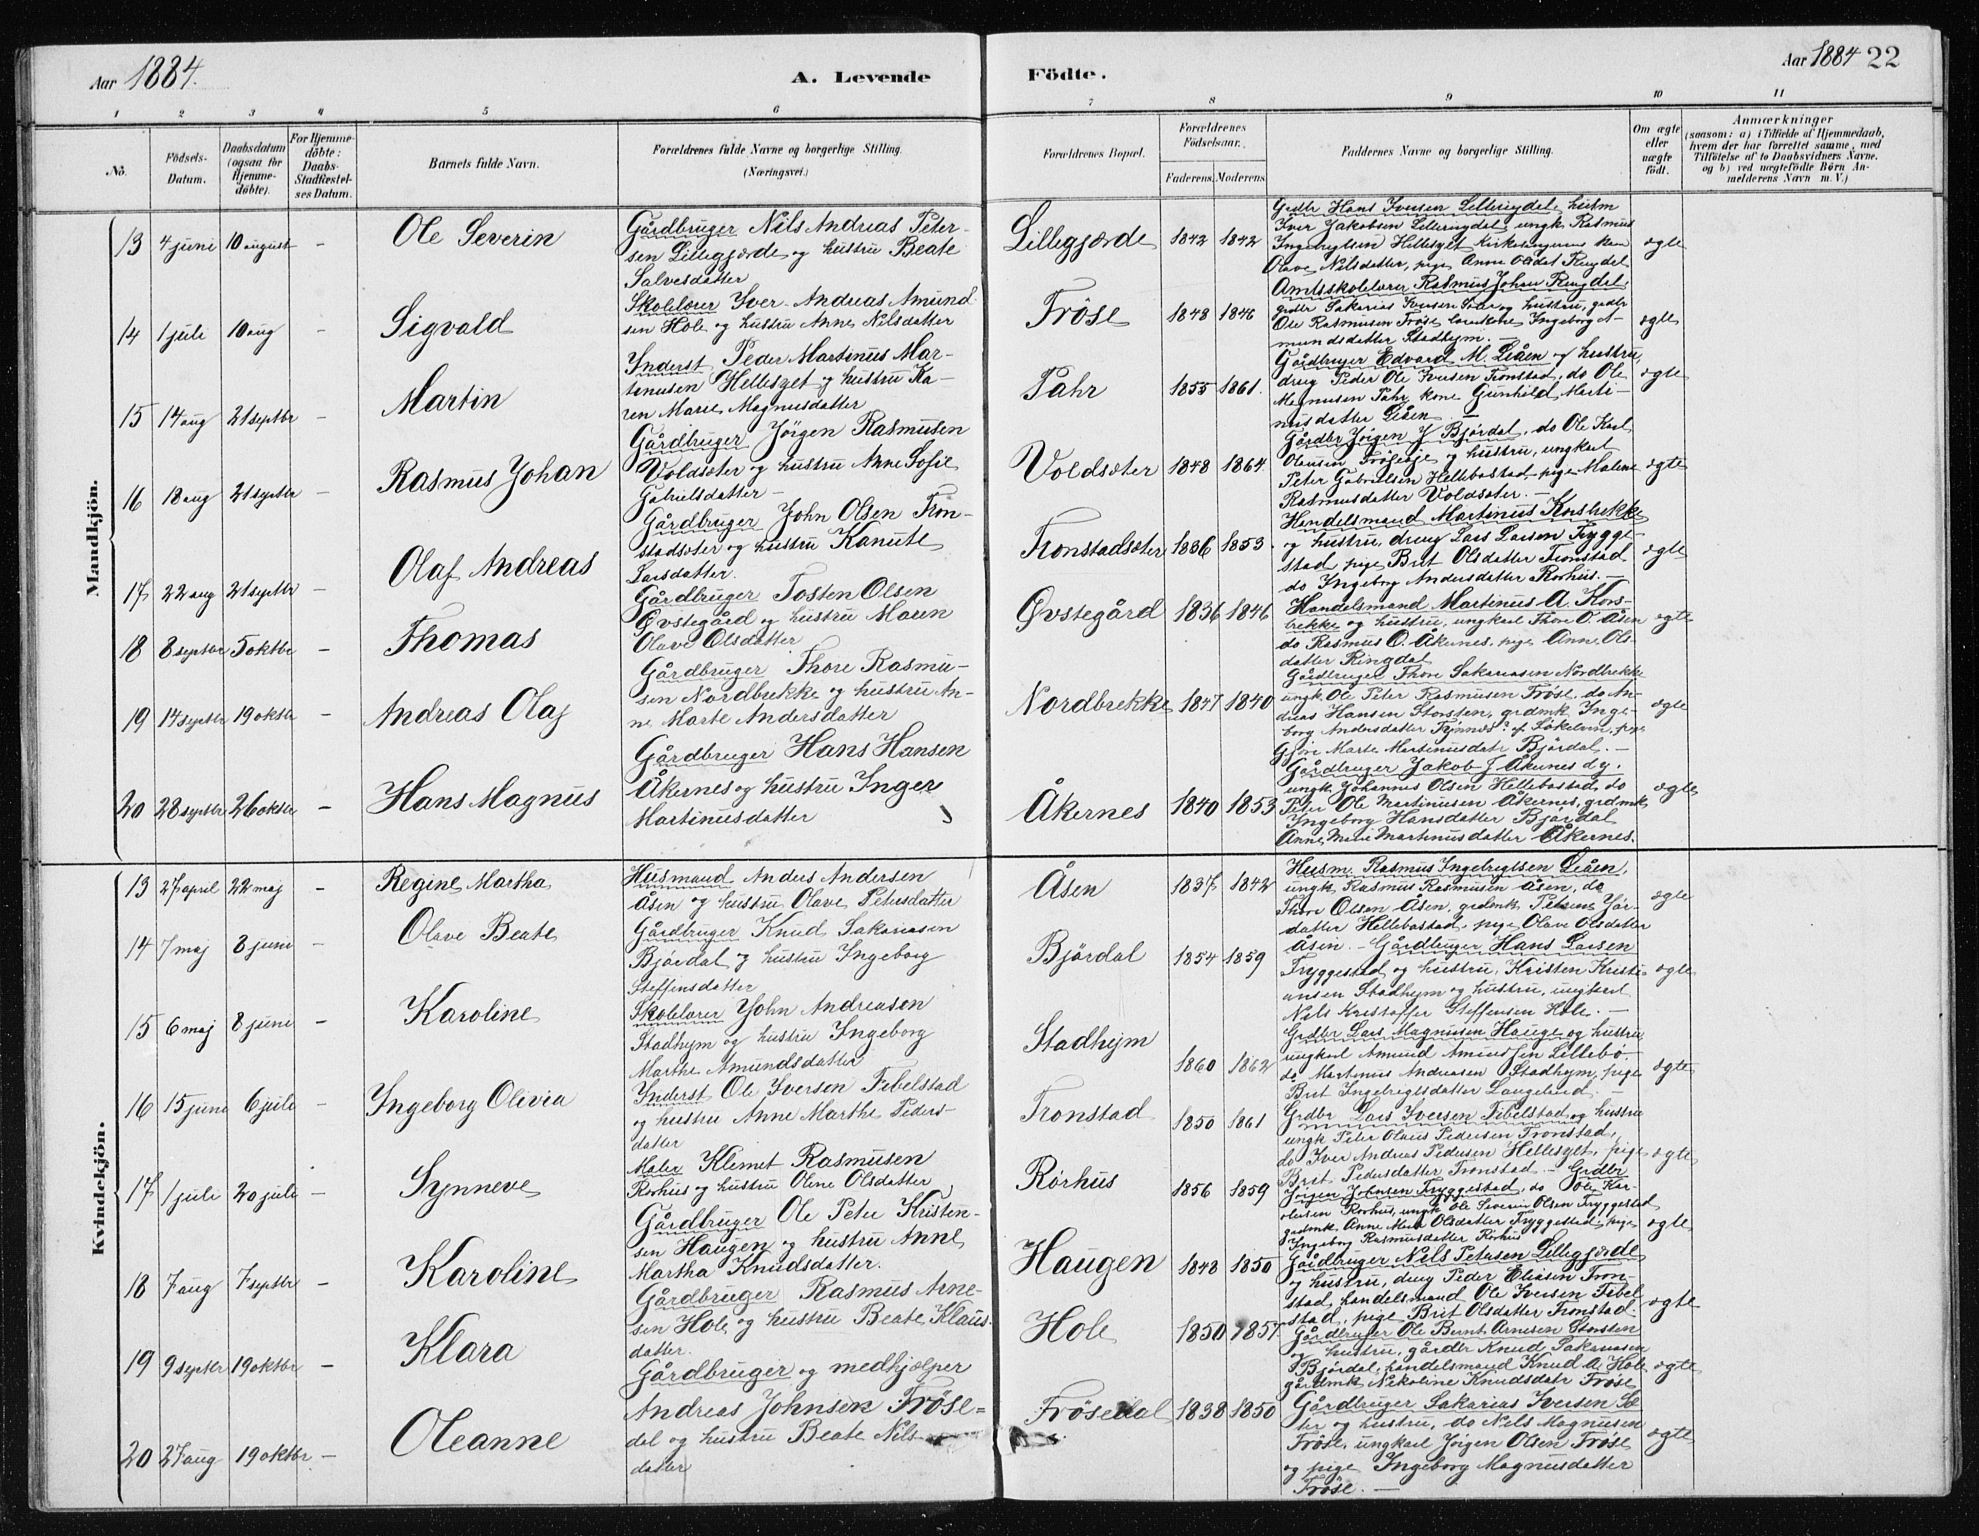 Aar 1884.
A. Levende
Födte.
Aar 1884 22
1 2 3 4 5 6 7 8 9 10 11
No.
Födsels-Datum.
Daabsdatum (ogsaa for Hjemme-døbte).
For Hjemme-døbte: Daabs-Stadfæstel-ses Datum.
Barnets fulde Navn.
Forældrenes fulde Navne og borgerlige Stilling. (Næringsvei.)
Forældrenes Bopæl.
Forældrenes Födselsaar.
Faderens. Moderens.
Faddernes Navne og borgerlige Stilling.
Om ægte eller uægte født.
Anmærkninger
(saasom: a) i Tilfælde af Hjemmedaab, hvem der har forrettet samme, med Tilføielse af to Daabsvidners Navne, og b) ved uægtefødte Børn An-melderens Navn m. V.)
Mandkjön.
13 4 juni 10 august - Ole Severin
Gårdbruger Nils Andreas Peter-
sen Lillegjærde og hustru Beate
Salvesdatter
Lillegjærde 1842 1842
Grdbr Hans Iversen Lilleringdal, husm
Iver Jakobsen Lilleringdal, ungk. Rasmus
Ingebrigtsen Hellesylt Kirkesangerens kone
Olave Nilsdatter, pige Anne Olsdat Ringdal
ægte
14 1 juli 10 aug - Sigvald
Skolelærer Iver Andreas Amund
sen Hole og hustru Anne Nilsdatter
Fröse 1848 1846
Amtsskolelærer Rasmus Johan Ringdal,
grdbr Sakarias Iversen Sæter og hustru, grdbr
Ole Rasmusen Fröse lærerkone Ingeborg A-
mundsdatter Stadhejm. -
ægte
15 14 aug 21 septbr - Martin
Inderst Peder Martinus Mar-
tinusen Hellesylt og hustru Ka-
ren Marie Magnusdatter
Pahr 1855 1861
Gårdbruger Edvard M. Leåen og hustru,
dreng Peder Ole Iversen Tronstad, do Ole
Magnusen Pahr, kone Gunhild Marti-
nusdatter Leåen -
ægte
16 18 aug 21 septbr Rasmus Johan
Gårdbruger Jörgen Rasmusen
Voldsæter og hustru Anne Sofie
Gabrielsdatter -
Voldsæter 1848 1864
Gårdbr Jörgen J Bjørdal, do Ole Karl
Olausen Fröse og hustru, ungkarl
Peter Gabrielsen Hellebostad, pige Malene
Rasmusdatter Voldsæter. -
ægte
17 22 aug 21 septbr - Olaf Andreas
Gårdbruger John Olsen Tron-
stadsæter og hustru Kanute
Larsdatter.
Tronstadsæter 1836 1853
Handelsmand Martinus Korsbrekke
og hustru, dreng Lars Larsen Trygge-
stad, pige Brit Olsdatter Tronstad
do Ingeborg Andersdatter Rørhus. -
ægte
18 8 septbr 5 oktbr - Thomas
Gårdbruger Tosten Olsen
Øvstegård og hustru Maren
Olave Olsdatter
Øvstegård 1836 1846
Handelsmand Martinus A. Kors-
brekke og hustru, ungkarl Thore O. Åsen
do Rasmus O. Åkernes, pige Anne Ols-
datter Ringdal
ægte
19 14 septbr 19 oktbr - Andreas Olaf
Gårdbruger Thore Rasmu-
sen Nordbrekke og hustru An-
ne Marte Andersdatter
Nordbrekke 1847 1840
Gårdbruger Thore Sakariasen Nordbrekke
ungk. Ole Peter Rasmusen Fröse, do An-
dreas Hansen Storsten, grdmk Inge-
borg Andersdatter af Søkelven, pige
Gjøri Marte Martinusdatr Bjørdal. -
ægte
20 28 septbr 26 oktbr - Hans Magnus
Gårdbruger Hans Hansen
Åkernes og hustru Inger
Martinusdatter
Åkernes 1840 1853
Gårdbruger Jakob J Åkernes
ungk Johannes Olsen Hellebostad, do
Peter Ole Martinusen Åkernes, grdmk
Ingeborg Hansdatter Bjørdal
Anne Marie Martinusdatter Åkernes.
ægte
Kvindekjön.
13 27 april 22 maj - Regine Martha
Husmand Anders Andersen
Åsen og hustru Olave Petersdatter
Åsen 1837 1842
Husm. Rasmus Ingebrigtsen Leåen,
ungk Rasmus Rasmusen Åsen, do
Thore Olsen Åsen, grdmk
datter Hellebostad, pige Olave Olsdatter
Åsen. -
ægte
14 7 maj 8 juni - Olave Beate
Gårdbruger Knud Sakariasen
Bjørdal og hustru Ingeborg
Steffensdatter
Bjørdal 1854 1859
Gårdbruger Hans Larsen
Tryggestad og hustru, Kristen Kristi-
ansen Stadhejm og hustru, ungkarl
Nils Kristoffer Steffensen Hole. -
ægte
15 6 maj 8 juni - Karoline
Skolelærer John Andreasen
Stadhejm og hustru Ingeborg
Marthe Amundsdatter
Stadhejm 1860 1862
Grdbr Lars Magnusen Hauge og hustru,
ungkarl Amund Amundsen Lillebø,
do Martinus Andreasen Stadhejm, pige
Brit Ingebrigtsdatter Langeland -
ægte
16 15 juni 6 juli - Ingeborg Olivia
Inderst Ole Iversen Fibelstad
og hustru Anne Marthe Peders-
datter
Tronstad 1850 1861
Grdbr Lars Iversen Fibelstad og hustru
ungk Peter Olaus Pedersen Tronstad,
do Iver Andreas Pedersen Hellesylt, pige
Brit Pedersdatter Tronstad -
ægte
17 1 juli 20 juli - Synneve
Maler Klemet Rasmusen
Rørhus og hustru Oline Olsdatter
Rørhus 1856 1859
Grdbr
Jörgen Johnsen Tryggestad, do Ole Kar-
olusen Rørhus, ungk Ole Severin Olsen Tryggestad
grdmk Anne Olsdatter Tryggestad, pige
Ingeborg Rasmusdatter Rørhus
ægte
18 7 aug 7 septbr - Karoline
Gårdbruger Ole Peter Kristen-
sen Haugen og hustru Anne
Martha Knudsdatter.
Haugen 1848 1850
Gårdbruger Nils Petersen Lillegjærde
og hustru, dreng Peder Eliasen Tron-
stad, handelsmand Ole Iversen Fibel
stad, pige Brit Olsdatter Tronstad
ægte
19 9 septbr 19 oktbr - Klara
Gårdbruger Rasmus Arne-
sen Hole og hustru Beate Klaus-
datter.
Hole 1850 1857
Gårdbruger Ole Bernt Arnesen Storsten
og hustru, gårdbr Knud Sakariasen
Bjørdal, handelsmand Knud A. Hole
gårdmk Nikoline Knudsdatr Fröse
ægte
20 27 aug 19 oktbr - Oleanne
Gårdbruger og medhjælper
Andreas Johnsen Fröse-
dal og hustru Beate Nils
datter
Frösedal 1838 1850
Gårdbruger Sakarias Iversen Sæ
ter og hustru, do Nils Magnusen
Fröse, ungkarl Jörgen Olsen Fröse
og pige Ingeborg Magnusdatter
Fröse. -
ægte